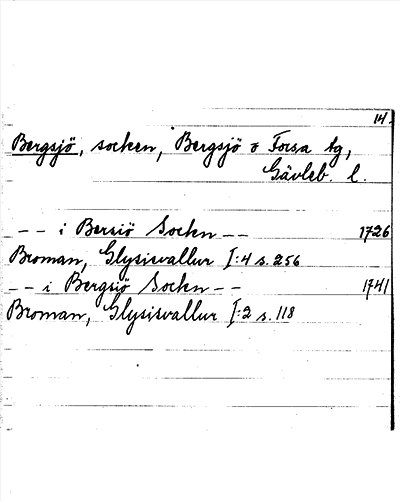 14.
Bergsjö, socken, Bergsjö o Forsa tg,
Gävleb. l.
-- i Bersiö Sockn -- 1726
Broman, Glysisvallur I:4 s. 256
-- i Bergsiö Sockn -- 1741
Broman, Glysisvallur I:2 s. 118